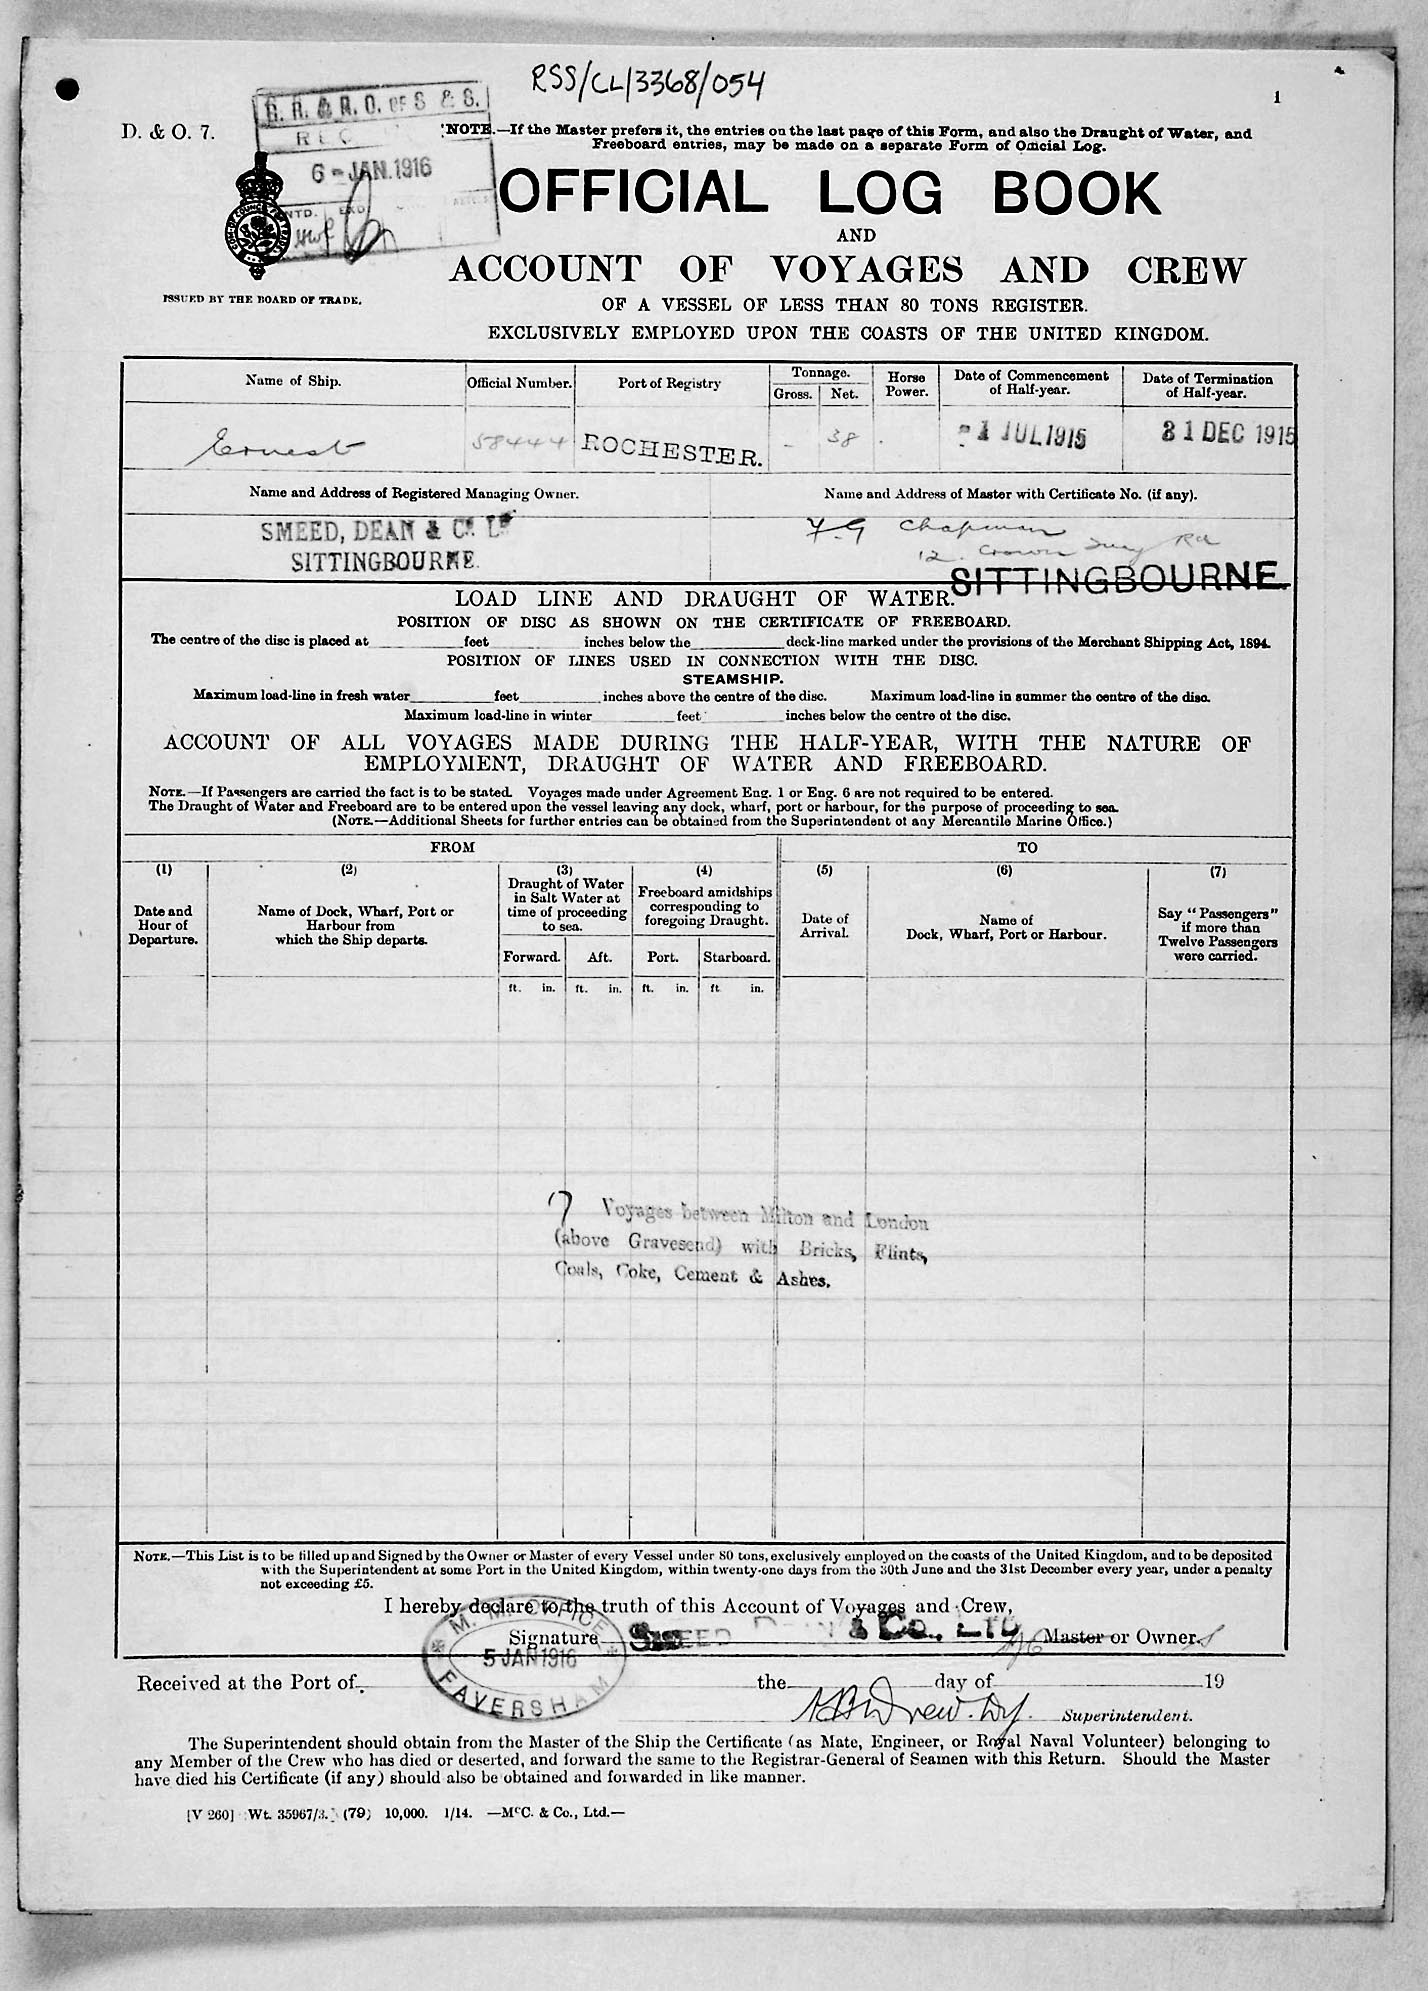 RSS/CL/3368/054
1
D. & O. 7.
G. R. & R. O. OF S & S.
REC
6 - JAN. 1916
NTD. EXD.
NOTE.—If the Master prefers it, the entries on the last page of this Form, and also the Draught of Water, and
Freeboard entries, may be made on a separate Form of Official Log.
OFFICIAL LOG BOOK
AND
ACCOUNT OF VOYAGES AND CREW
OF A VESSEL OF LESS THAN 80 TONS REGISTER.
EXCLUSIVELY EMPLOYED UPON THE COASTS OF THE UNITED KINGDOM.
ISSUED BY THE BOARD OF TRADE.
Name of Ship. Official Number. Port of Registry Tonnage. Gross. Net. Horse Power. Date of Commencement of Half-year. Date of Termination of Half-year.
Ernest 58444 ROCHESTER. - 38 . - 1 JUL 1915 31 DEC 1915
Name and Address of Registered Managing Owner. Name and Address of Master with Certificate No. (if any).
SMEED, DEAN & Co. Ld
SITTINGBOURNE.
F. G Chapman
12. Crown Rd
SITTINGBOURNE.
LOAD LINE AND DRAUGHT OF WATER.
POSITION OF DISC AS SHOWN ON THE CERTIFICATE OF FREEBOARD.
The centre of the disc is placed at feet inches below the deck-line marked under the provisions of the Merchant Shipping Act, 1894.
POSITION OF LINES USED IN CONNECTION WITH THE DISC.
STEAMSHIP.
Maximum load-line in fresh water feet inches above the centre of the disc. Maximum load-line in summer the centre of the disc.
Maximum load-line in winter feet inches below the centre of the disc.
ACCOUNT OF ALL VOYAGES MADE DURING THE HALF-YEAR, WITH THE NATURE OF
EMPLOYMENT, DRAUGHT OF WATER AND FREEBOARD.
NOTE.—If Passengers are carried the fact is to be stated. Voyages made under Agreement Eng. 1 or Eng. 6 are not required to be entered.
The Draught of Water and Freeboard are to be entered upon the vessel leaving any dock, wharf, port or harbour, for the purpose of proceeding to sea.
(NOTE.—Additional Sheets for further entries can be obtained from the Superintendent of any Mercantile Marine Office.)
FROM TO
(1) (2) (3) (4) (5) (6) (7)
Date and
Hour of
Departure.
Name of Dock, Wharf, Port or
Harbour from
which the Ship departs.
Draught of Water
in Salt Water at
time of proceeding
to sea.
Freeboard amidships
corresponding to
foregoing Draught.
Date of
Arrival.
Name of
Dock, Wharf, Port or Harbour.
Say "Passengers"
if more than
Twelve Passengers
were carried.
Forward. Aft. Port. Starboard.
ft. in. ft. in. ft. in. ft in.
7 Voyages between Milton and London
(above Gravesend) with Bricks, Flints,
Coals, Coke, Cement & Ashes.
NOTE.—This List is to be filled up and Signed by the Owner or Master of every Vessel under 80 tons, exclusively employed on the coasts of the United Kingdom, and to be deposited
with the Superintendent at some Port in the United Kingdom, within twenty-one days from the 30th June and the 31st December every year, under a penalty
not exceeding £5.
I hereby declare to the truth of this Account of Voyages and Crew,
Signature SMEED DEAN & Co., LTD Master or Owner.s
M. M. OFFICE
5 JAN 1916
FAVERSHAM
Received at the Port of. the day of 19
Superintendent.
The Superintendent should obtain from the Master of the Ship the Certificate (as Mate, Engineer, or Royal Naval Volunteer) belonging to
any Member of the Crew who has died or deserted, and forward the same to the Registrar-General of Seamen with this Return. Should the Master
have died his Certificate (if any) should also be obtained and forwarded in like manner.
[V 260] Wt. 35967/3. (79) 10,000. 1/14. —McC. & Co., Ltd.—